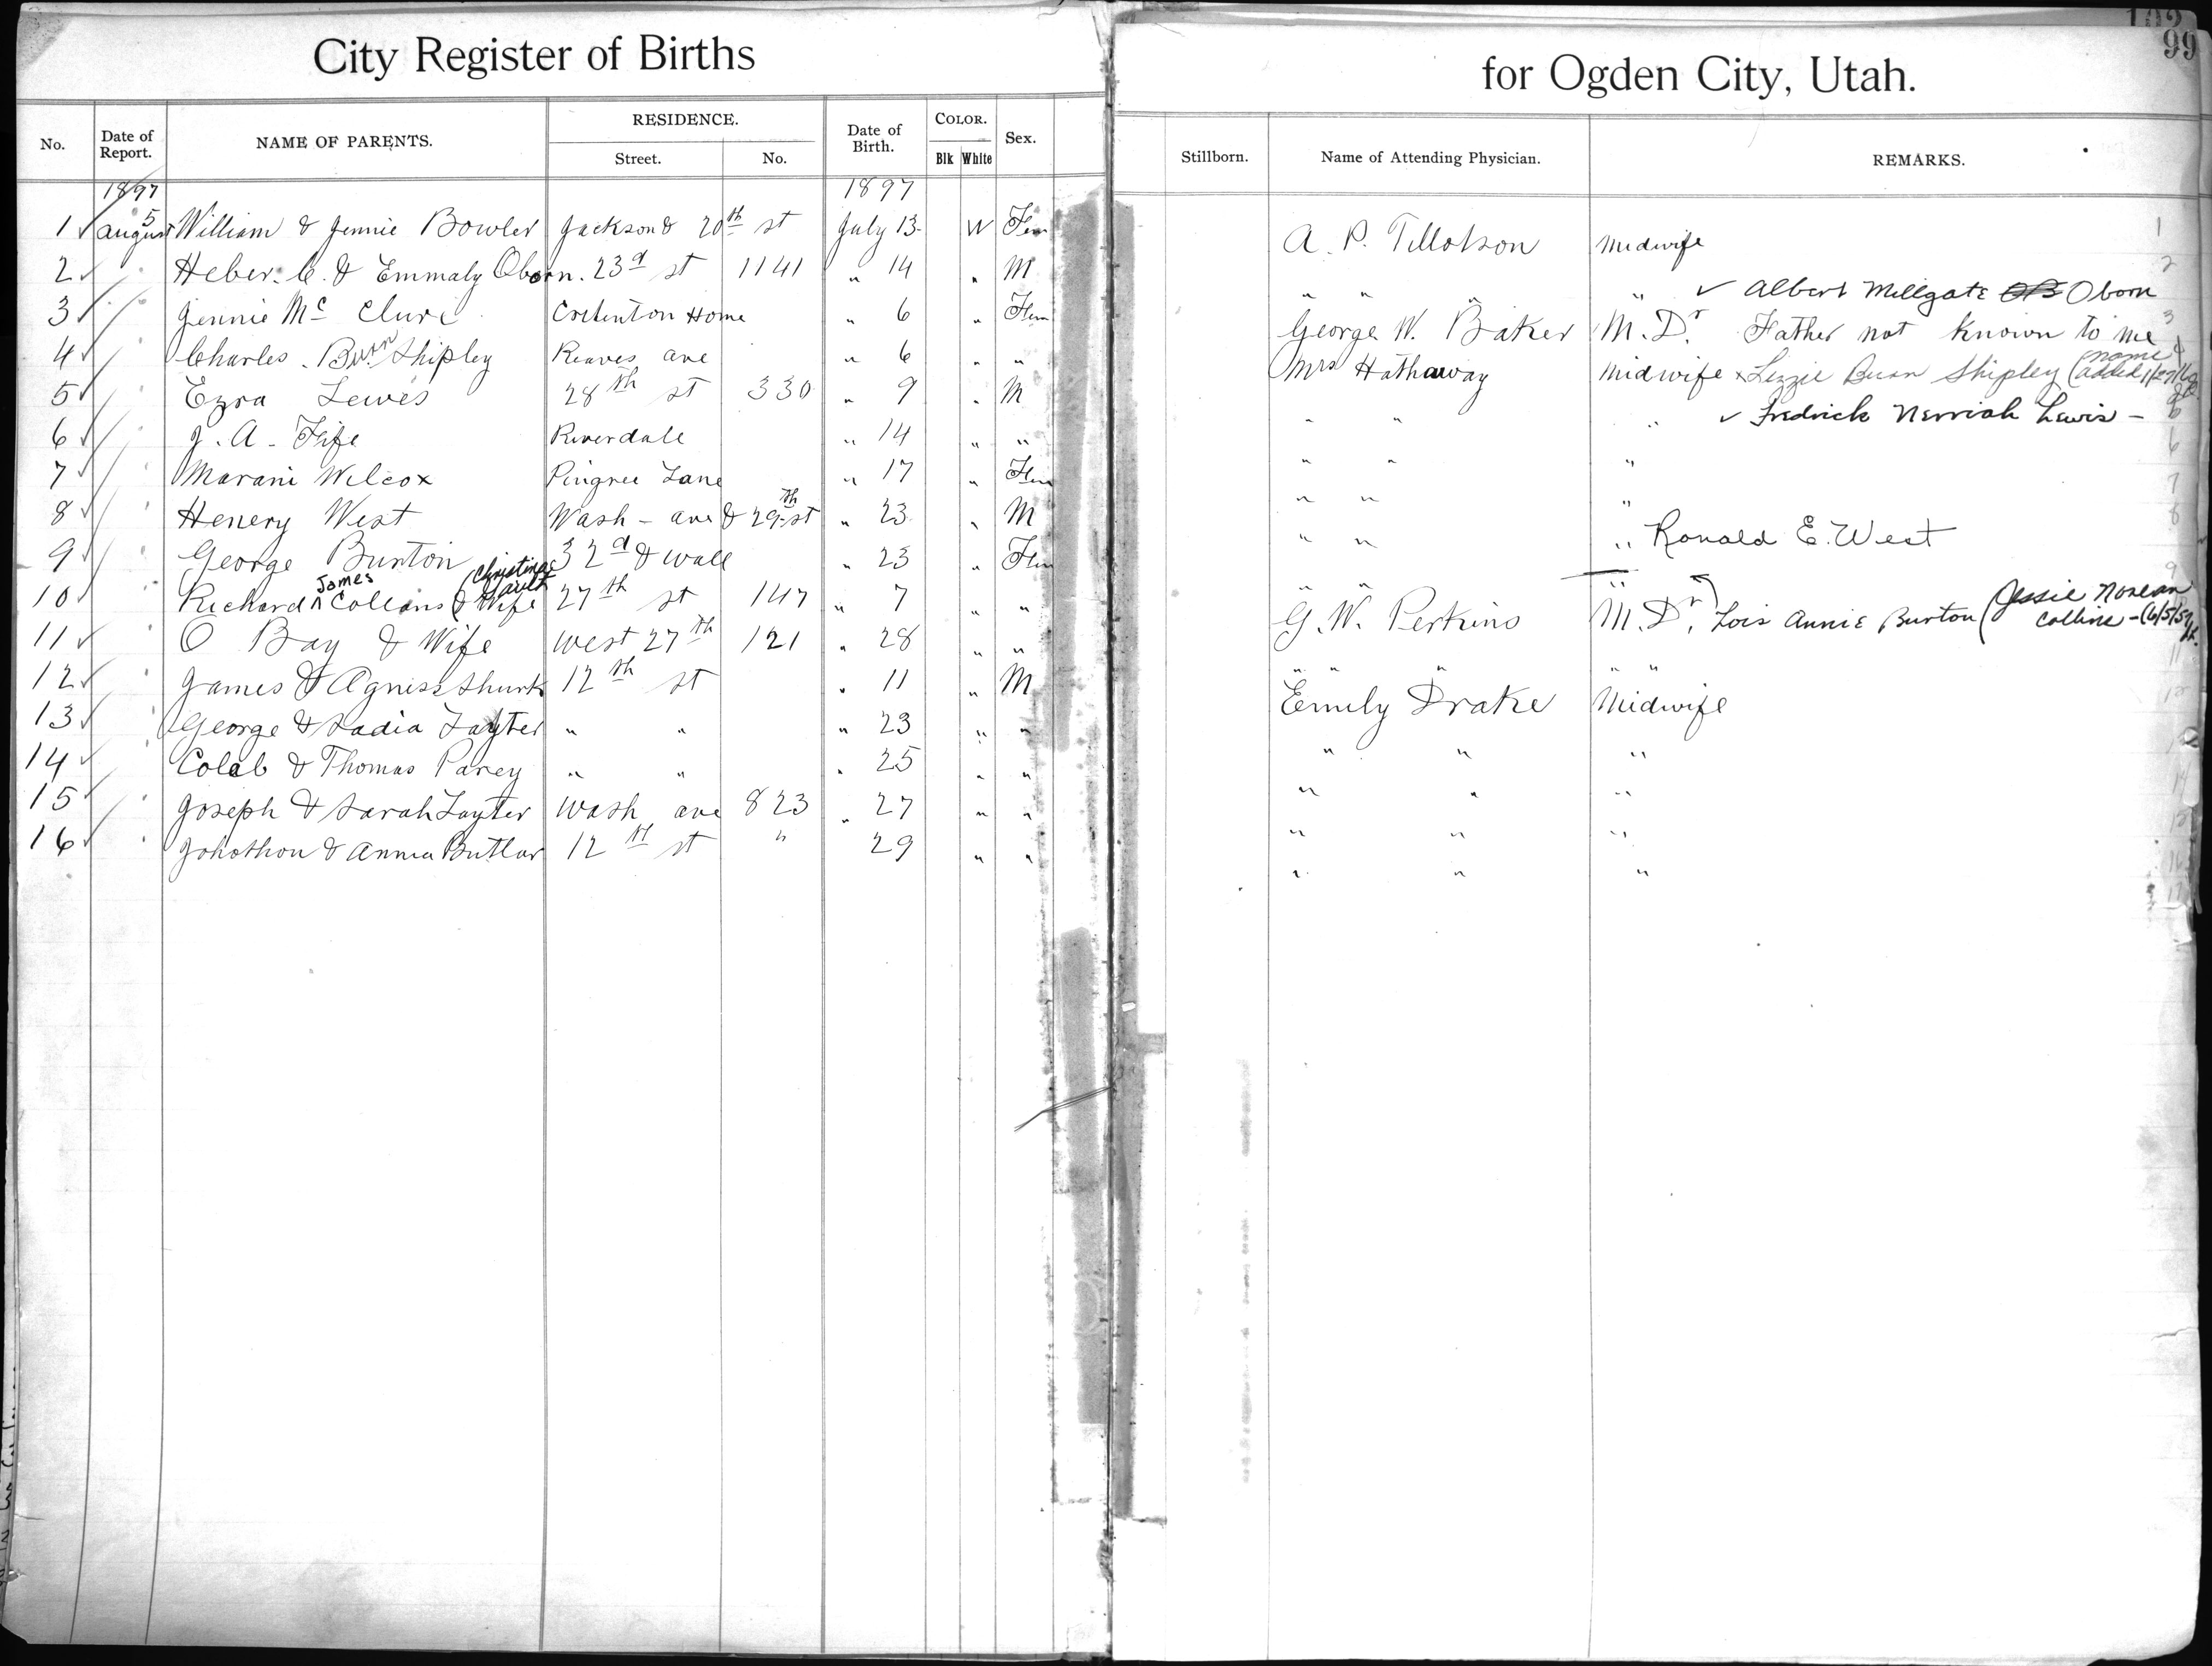 City Register of Births for Ogden City, Utah.
99
No. Date of Report. NAME OF PARENTS. RESIDENCE. Street. No. Date of Birth. COLOR. Blk White Sex. Stillborn. Name of Attending Physician. REMARKS.
1897 1897
1 August 5 William & Jennie Bowler Jackson & 20th st July 13 W Fem A. P. Tillotson Midwife 1
2 " Heber. C. & Emmaly Oborn. 23d st 1141 " 14 " M " " " " Albert Millgate Oborn 2
3 " Jennie Mc Clure Cretenton Home " 6 " Fem George W. Baker M. Dr. Father not known to me 3
4 " Charles. Burn Shipley Reaves ave " 6 " " Mrs Hathaway Midwife x Lizzie Buan Shipley (name added
5 " Ezra Lewes 28th st 330 " 9 " M " " " Fredrick Nerriah Lewis -
6 " J. A. Fife Riverdale " 14 " " " " " 6
7 " Marani Wilcox Pingree Lane " 17 " Fem " " " 7
8 " Henery West Wash - ave & 29th st " 23 " M " " " Ronald E. West 8
9 " George Burton 32d & wall " 23 " Fem " " " Lois Annie Burton 9
10 " Richard James Collans & Wife (Christina 27th st 147 " 7 " " G. W. Perkins M. Dr. (Jessie Norean Collins - (6/5/59
11 " O Bay & Wife West 27th 121 " 28 " " " " " " " 11
12 " James & Agniss Shurk 12th st " 11 " M Emily Drake Midwife 12
13 " George & Sadia Tayter " " " 23 " " " " "
14 " Colab & Thomas Parey " " " 25 " " " " " 14
15 " Joseph & Sarah Tayter Wash ave 823 " 27 " " " " " 15
16 " Johothon & Anna Butlar 12th st " 29 " " " " " 16
17